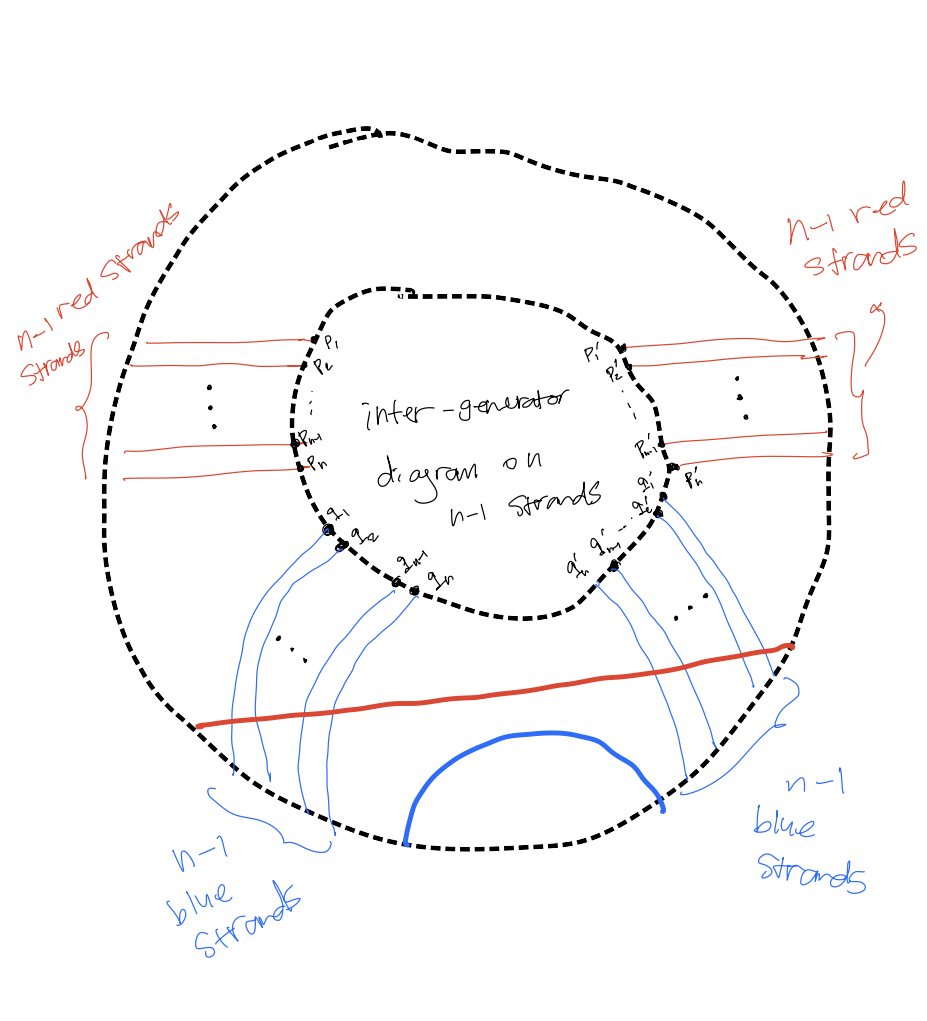 n-1 red strands
n-1 red
strands
strands
P₁
P₂
Pₙ₋₁
Pₙ
P₁'
P₂'
Pₙ₋₁'
Pₙ'
inter-generator
diagram on
n-1 strands
q₁
q₂
qₙ₋₁
qₙ
q₁'
q₂'
qₙ₋₁'
qₙ'
n-1
blue
strands
n-1
blue
strands